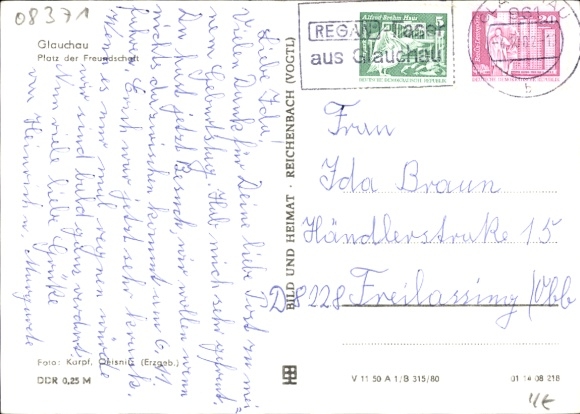 08371
Glauchau
Platz der Freundschaft
Liebe Ida!
Vielen Dank für Deine liebe Post zu mei-
nem Geburtstag. Hab mich sehr gefreut.
Du hast jetzt Besuch, wir wollen wenn
nichts dazwischen kommt am 6.
fahren. Erich war jetzt sehr krank.
Wenn es nur mal regnen würde
wir sind bald ganz verdorrt.
Nun viele liebe Grüße
von Heinrich u. Margarete
Foto: Karpf, Oelsnitz (Erzgeb.)
DDR 0,25 M
BILD UND HEIMAT · REICHENBACH (VOGTL)
REGANO
aus Glauchau
Alfred-Brehm-Haus
5
DEUTSCHE DEMOKRATISCHE REPUBLIK
20
961
b
Frau
Ida Braun
Händlerstraße 15
D-8228 Freilassing /Obb
V 11 50 A 1/B 315/80
01 14 08 218
4€